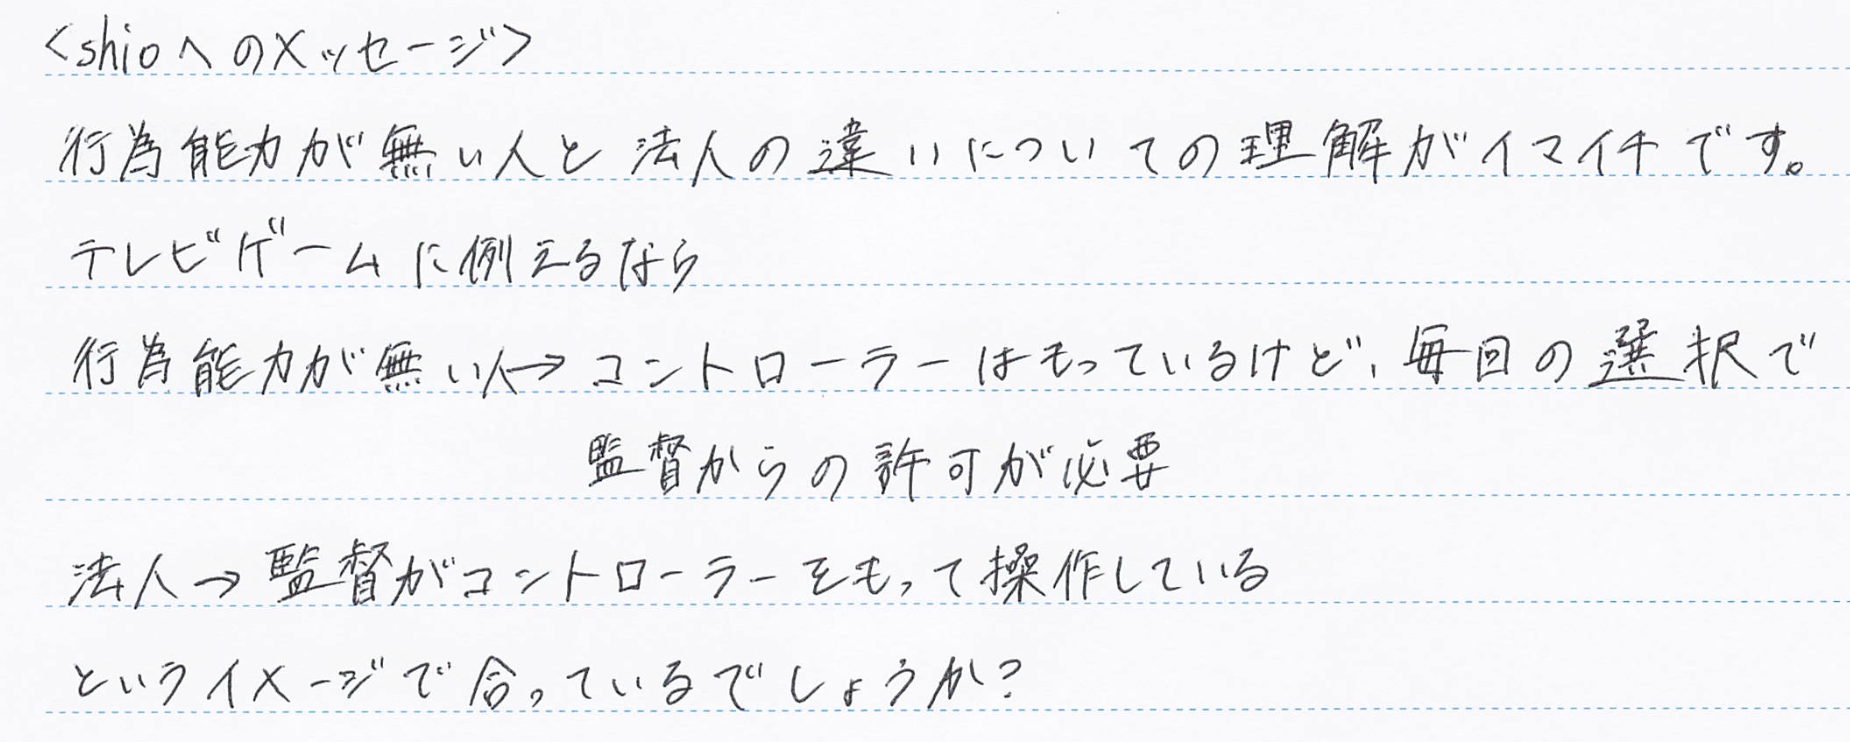 <shioへのメッセージ>
行為能力が無い人と法人の違いについての理解がイマイチです。
テレビゲームに例えるなら
行為能力が無い人→コントローラーはもっているけど、毎回の選択で
監督からの許可が必要
法人→監督がコントローラーをもって操作している
というイメージで合っているでしょうか?